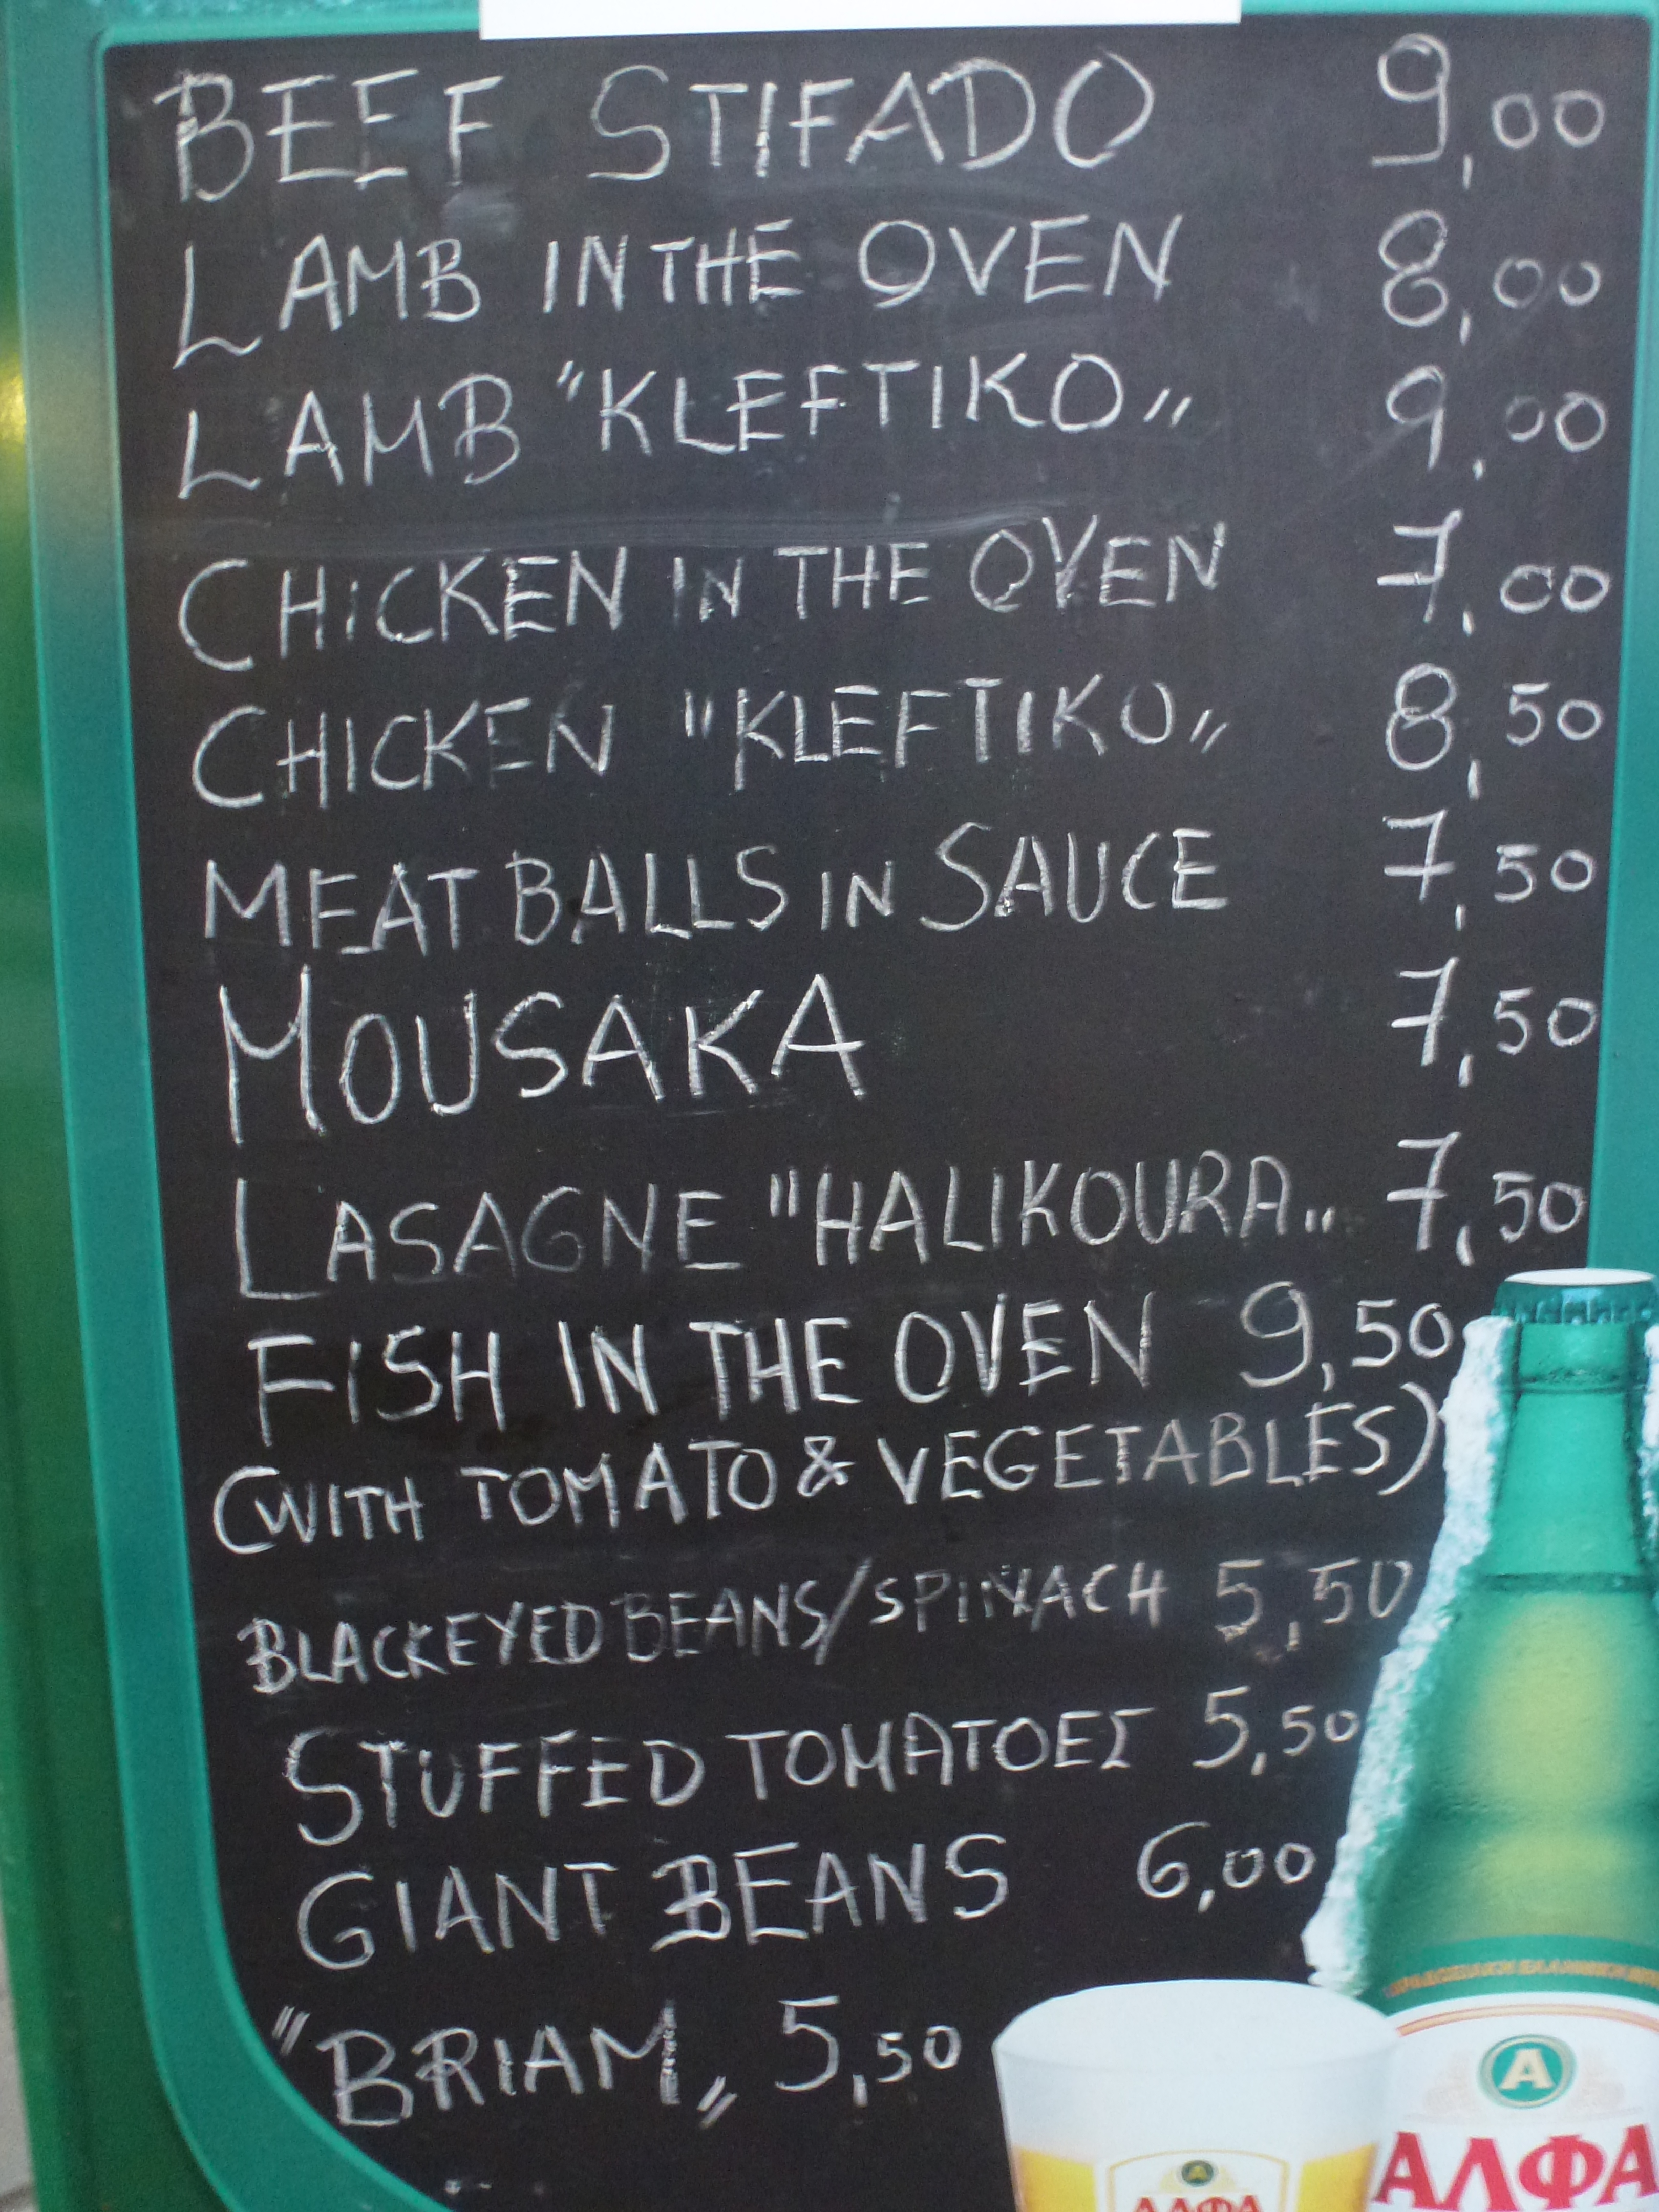 BEEF STIFADO 9,00
LAMB IN THE OVEN 8,00
LAMB "KLEFTIKO„ 9,00
CHICKEN IN THE OVEN 7,00
CHICKEN "KLEFTIKO„ 8,50
MEAT BALLS IN SAUCE 7,50
MOUSAKA 7,50
LASAGNE "HALIKOURA„ 7,50
FISH IN THE OVEN 9,50
(WITH TOMATO & VEGETABLES)
BLACKEYED BEANS/SPINACH 5,50
STUFFED TOMATOEΣ 5,50
GIANT BEANS 6,00
"BRIAM„ 5,50
A
ΑΛΦΑ
A
ΑΛΦΑ